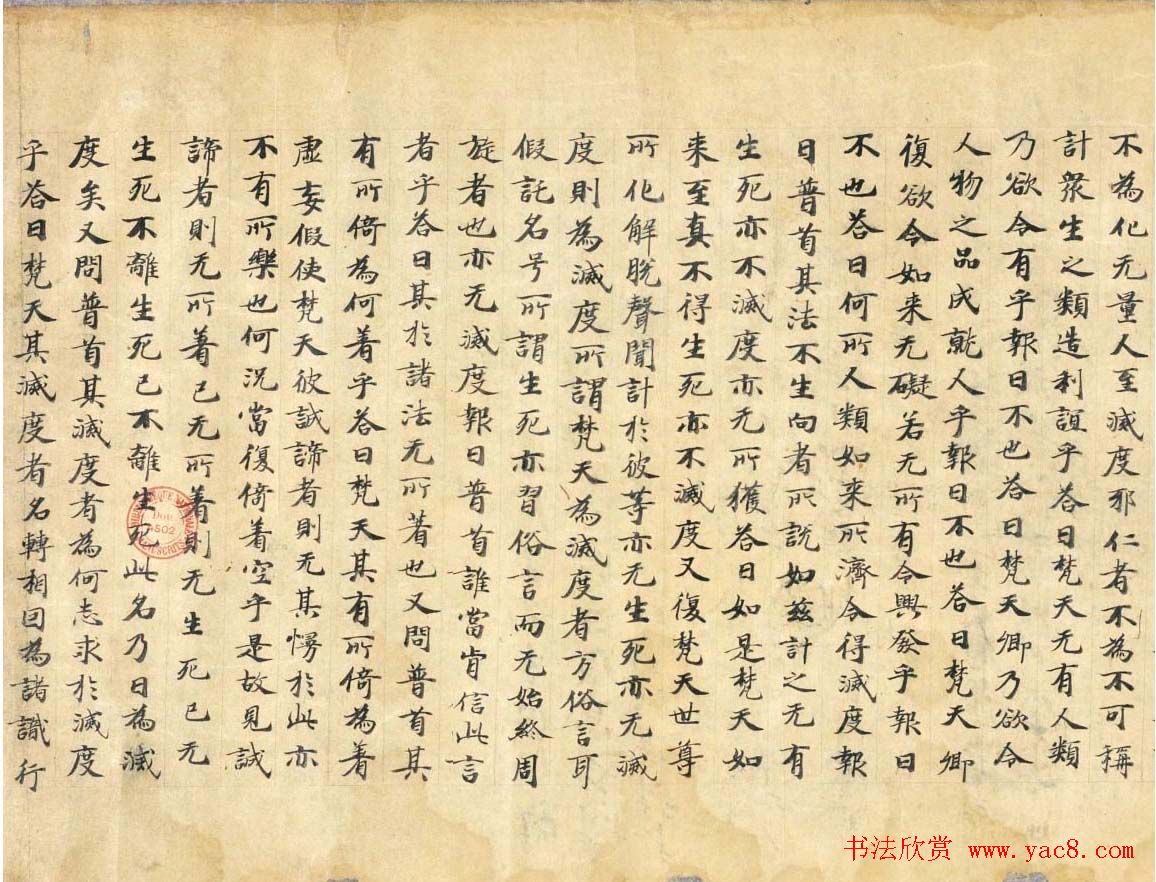 不為化无量人至滅度邪仁者不為不可稱
計衆生之類造利誼乎荅曰梵天无有人類
乃欲令有乎報曰不也荅曰梵天卿乃欲令
人物之品成就人乎報曰不也荅曰梵天卿
復欲令如来无礙若无所有令興發乎報曰
不也荅曰何所人類如来所濟令得滅度報
曰普首其法不生向者所説如兹計之无有
生死亦不滅度亦无所獲荅曰如是梵天如
来至真不得生死亦不滅度又復梵天世尊
所化解脱聲聞計於彼等亦无生死亦无滅
度則為滅度所謂梵天為滅度者方俗言耳
假託名号所謂生死亦習俗言而无始終周
旋者也亦无滅度報曰普首誰當肯信此言
者乎荅曰其於諸法无所著也又問普首其
有所倚為何著乎荅曰梵天其有所倚為著
虛妄假使梵天彼誠諦者則无其愣於此亦
不有所樂也何況當復倚著空乎是故見誠
諦者則无所著已无所著則无生死已无
生死不離生死已不離生死此名乃曰為滅
度矣又問普首其滅度者為何志求於滅度
乎荅曰梵天其滅度者名轉相回為諸識行
書法欣赏 www.yac8.com